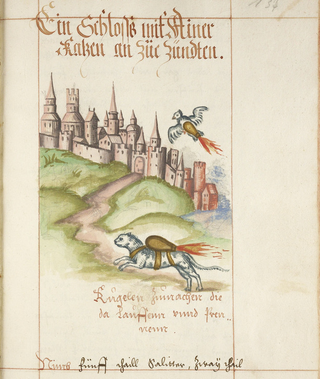 134
Ein Schloss mit Ainer
Katzen an züe zündten.
Kugelen zumachen die
da Lauffenn vnnd Pren„
nenn.
Nimb fünff thaill Saliter, zway thail